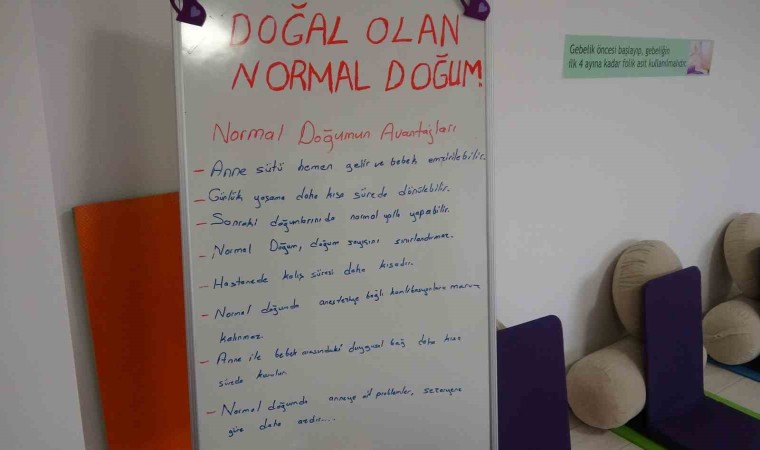 DOĞAL OLAN
NORMAL DOĞUM!
Normal Doğumun Avantajları
- Anne sütü hemen gelir ve bebek emzirilebilir.
- Günlük yaşama daha kısa sürede dönülebilir.
- Sonraki doğumlarını da normal yolla yapabilir.
- Normal Doğum, doğum sayısını sınırlandırmaz.
- Hastanede kalış süresi daha kısadır.
- Normal doğumda anesteziye bağlı maruz
kalınmaz.
- Anne ile bebek arasındaki duygusal bağ daha kısa
sürede kurulur.
- Normal doğumda anneye ait problemler, sezaryene
göre daha azdır....
Gebelik öncesi başlayıp, gebeliğin
ilk 4 ayına kadar folik asit kullanılmalıdır.